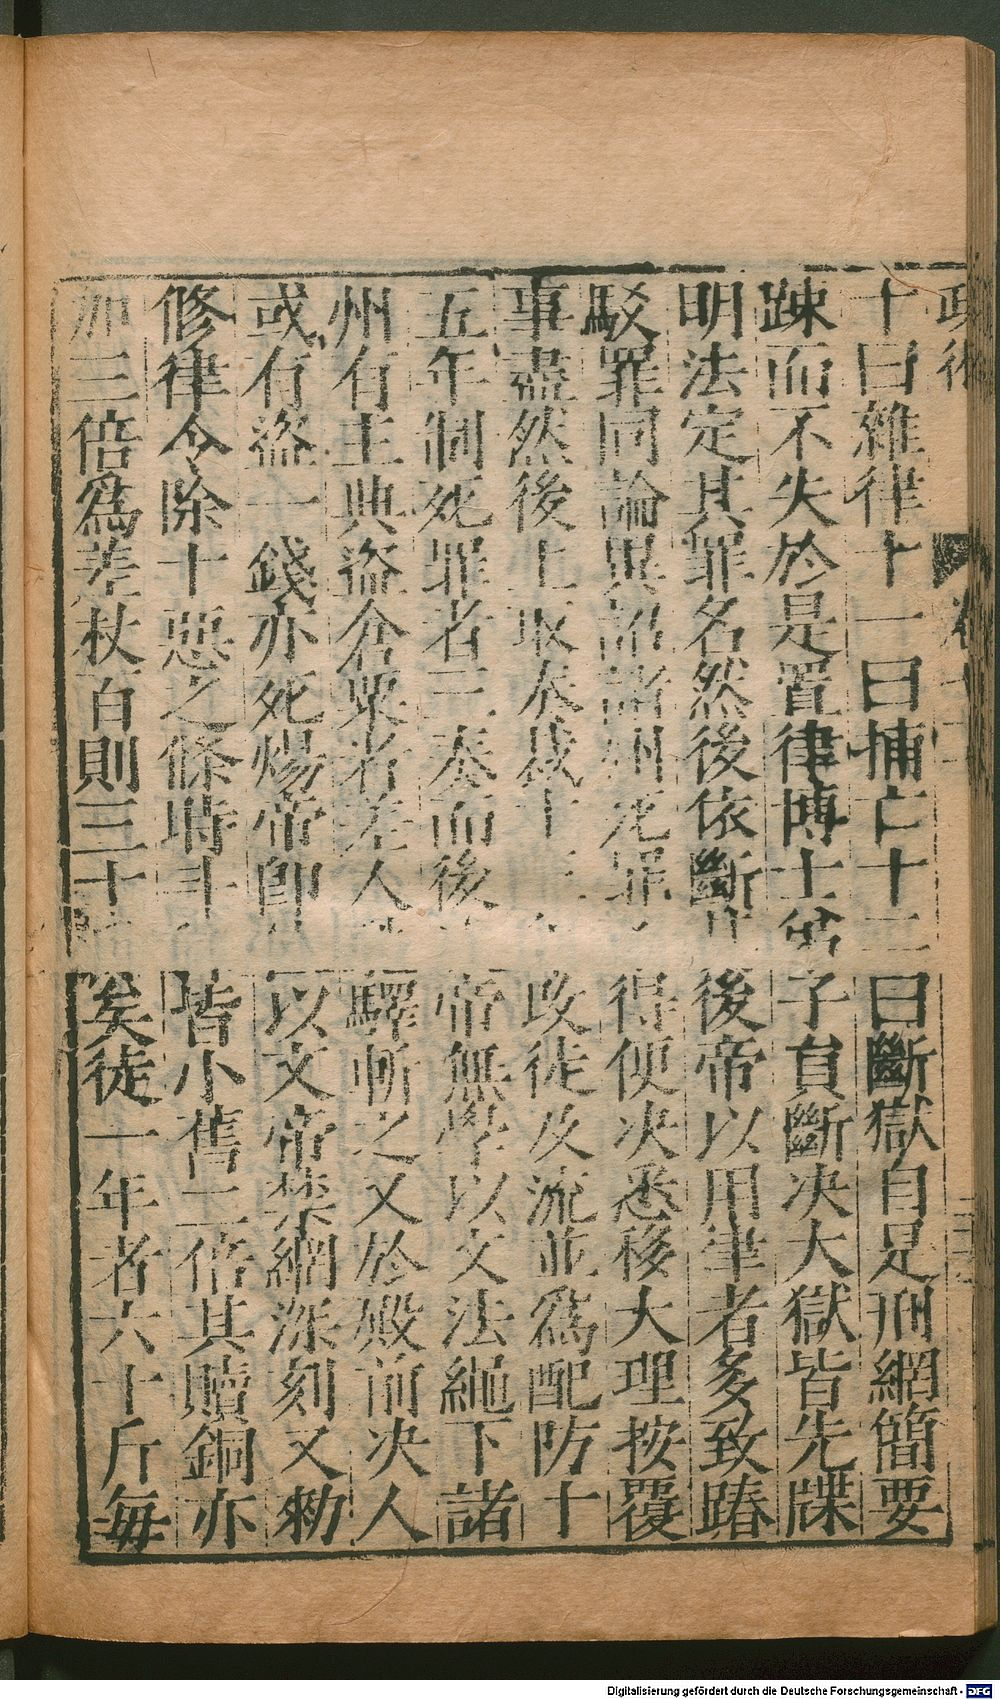 十曰雜律十一曰捕亡十二曰斷獄自是刑網簡要
疎而不失於是置律博士弟子員斷决大獄皆先牒
明法定其罪名然後依斷 後帝以用律者多致踳
駁罪同論異詔諸州死罪 得便决悉移大理按覆
事盡然後上取奏裁十 改徒及流並爲配防十
五年制死罪者三奏而後 帝無學以文法繩下諸
州有主典盗倉粟者差人 驛斬之又於殿前决人
或有盗一錢亦死煬帝卽 以文帝禁網深刻又勑
修律令除十惡之條時斗 皆小舊二倍其贖銅亦
加三倍爲差杖百則三十 矣徒一年者六十斤每
Digitalisierung gefördert durch die Deutsche Forschungsgemeinschaft - DFG